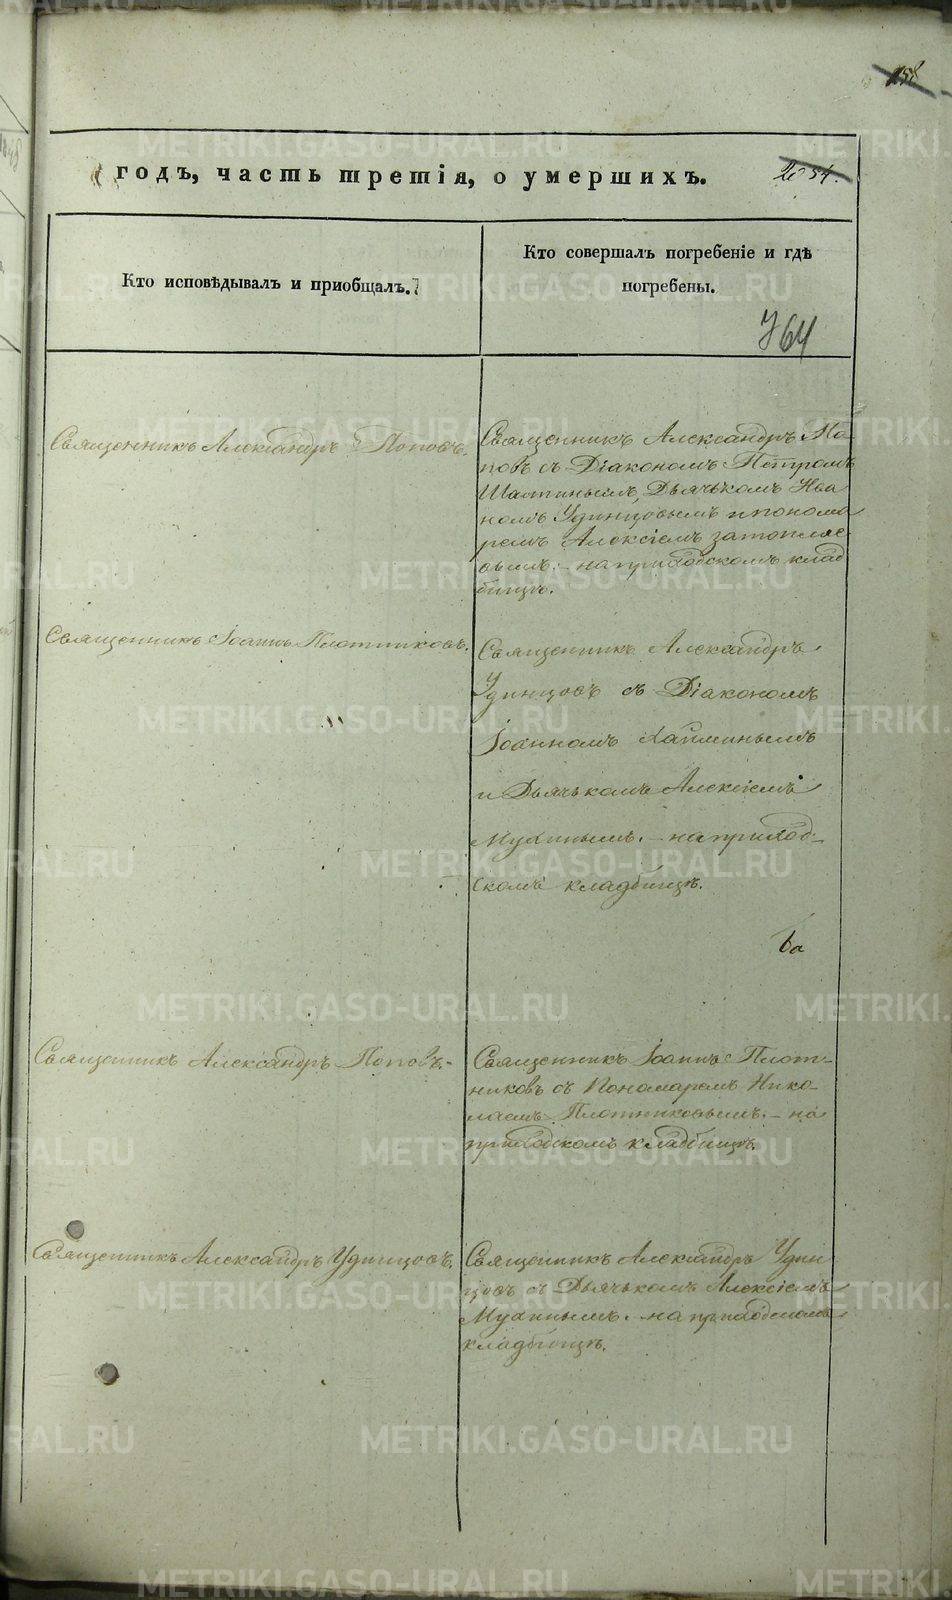 METRIKI.GASO-URAL.RU
158
годъ, часть третія, о умершихъ.
2054.
Кто исповѣдывалъ и приобщалъ.
Кто совершалъ погребеніе и гдѣ
погребены.
764
Священникъ Александръ Поповъ.
Священникъ Александръ По-
повъ съ Діакономъ Петромъ
Дьячькомъ Ива
номъ Удинцовымъ и понома
ремъ Алексіемъ затопляе-
вымъ. - на приходскомъ клад
бищѣ.
Священникъ Іоаннъ Плотниковъ.
Священникъ Александръ
Удинцовъ съ Діакономъ
Іоанномъ
и Дьячькомъ Алексіемъ
Мухинымъ. - на приход-
скомъ кладбищѣ.
Священникъ Александръ Поповъ. -
Священникъ Іоаннъ Плот-
никовъ съ Пономаремъ Нико-
лаемъ Плотниковымъ. - на
приходскомъ кладбищѣ.
Священникъ Александръ Удинцовъ.
Священникъ Александръ Удин
цовъ съ Дьячькомъ Алексіемъ
Мухинымъ. - на приходскомъ
кладбищѣ.